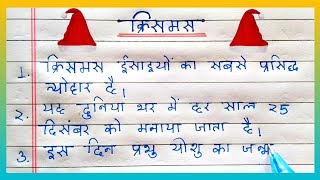 क्रिसमस
1. क्रिसमस ईसाइयों का सबसे प्रसिद्ध
त्योहार है।
2. यह दुनिया भर में हर साल 25
दिसंबर को मनाया जाता है।
3. इस दिन प्रभु यीशु का जन्म